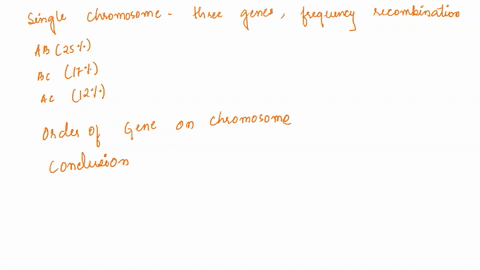 Single chromosome - three genes, frequency recombination
AB (25%)
BC (17%)
AC (12%)
Order of Gene on chromosome
Conclusion